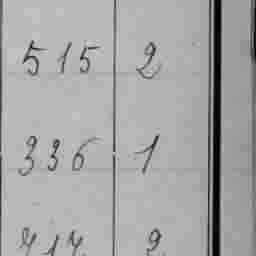 515 2
336 1
717 2